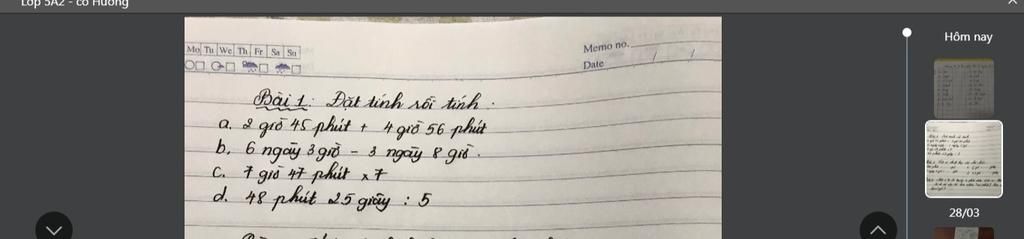 Lớp 5A2 - cô Hương
Hôm nay
Mo Tu We Th Fr Sa Su
Memo no.
Date / /
Bài 1: Đặt tính rồi tính.
a. 2 giờ 45 phút + 4 giờ 56 phút
b. 6 ngày 3 giờ - 3 ngày 8 giờ.
c. 7 giờ 47 phút x 7
d. 48 phút 25 giây : 5
28/03